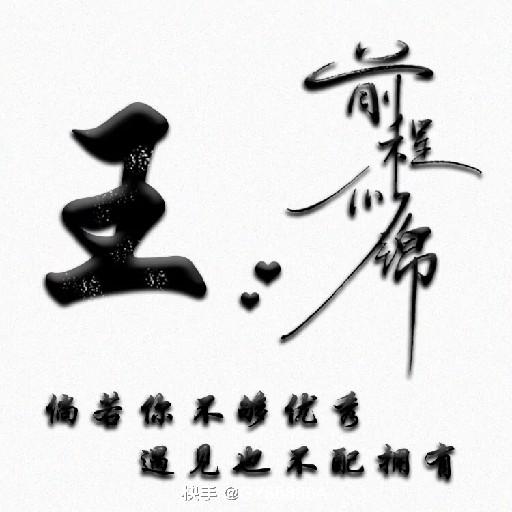 王
前程似锦
倘若你不够优秀
遇见也不配拥有
快手 @